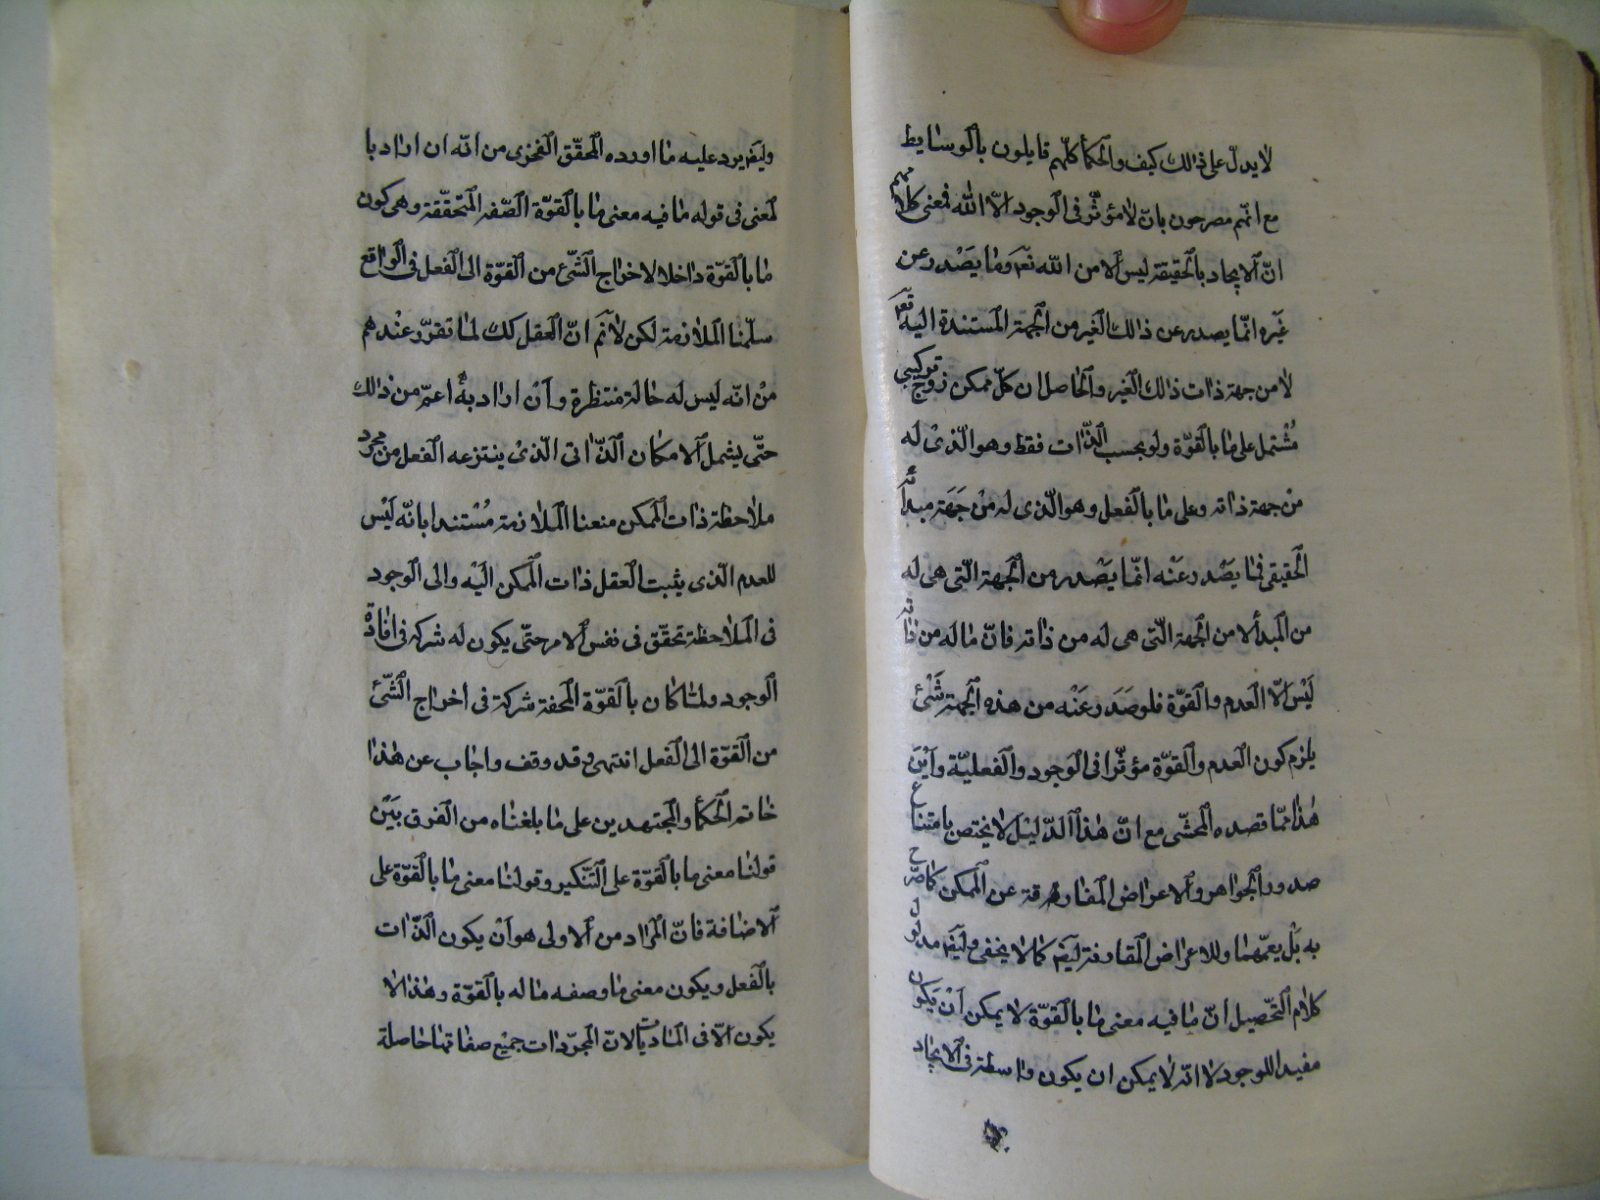 لا يدلّ على ذالك كيف والحكمأ كلّهم قايلون بالوسايط
مع انّهم مصرحون بانّ لا مؤثّر فى الوجود الاّ الله فمعنى كلامهم
انّ الايجاد بالحقيقة ليس الا من الله تعۤ وما يصْدر عن
غيره انمّا يصدر عن ذالك الغير من الجهة المستندة اليه تعۤ
لا من جهة ذات ذالك الغير والحاصل ان كلّ ممكن زوج تركيبى
مُشتمل على ما بالقوّة ولو بحسب الذّات فقط وهو الّذىْ له
منْ جهة ذاته وعلى ما بالفعل وهو الّذى له منْ جَهَة مبدأه
الحقيقى فما يصْدر عنْه انمّا يصْدر من الجهة الّتى هى له
من المبدأ لا من الجهة الّتى هى له من ذاته فانّ ما له من ذاته
ليْس الاّ العدم والقوّة فلو صَدَر عَنْه من هذه الجهة شَئ
يلزم كون العدم والقوّة مؤثّرا فى الوجود والفعليّة وايْن
هٰذا ممّا قصده المحشّى مع انّ هٰذا الدّليل لا يختص بامتناع
صدور الجواهر والاعراض المفارقة عن الممكن كما صرّح
به بَل يعمّهما وللاعراض المقارنة ليۤضۤ كما لا يخفى وليۤضۤ مدلول
كلام التّحصيل انّ ما فيه معنى ما بالقوّة لا يمكن انْ يَكون
مفيدا للوجود لا انّه لا يمكن ان يكون واسطة فى الايجاد
وليۤضۤ يرد عليه ما اورده المحقّق الفخرى من انّه ان اراد با
لمعنى فى قوله ما فيه معنى ما بالقوّة الصّفه المتحقّقة وهى كون
ما بالقوّة داخلا لاخراج الشّئ من القوّة الى الفعل فى الواقع
سلّمنا الملازمة لكن لا نمۤ انّ العقل كك لما تقرّر عنْدهم
منْ انّه ليس له حالة منتظرة وانْ اراد به اعمّ من ذالك
حتّى يشمل الامكان الذّاتى الّذىْ ينتزعه الفعل من مجرد
ملاحظة ذات الممكن منعنا الملازمة مُسْتندا بانّه ليْس
للعدم الّذى يثبت العقل ذات الممكن اليْه والى الوجود
فى الملاحظة تحقّق فى نفس الامر حتّى يكون له شركة فى افادة
الوجود ولما كان بالقوّة المحفة شركة فى اخراج الشّئ
من القوّة الى الفعل انتهى وقد وقف واجاب عن هٰذا
خاتم الحكمأ والمجتهدين على ما بلغناه من الفرق بيَن
قولنا معنى ما بالقوّة على التنكير وقولنا معنى ما بالقوّة على
الاضافة فانّ المراد من الاولى هو انْ يكون الذّات
بالفعل ويكون معنى ما وصفه ما له بالقوّة وهٰذا لا
يكون الاّ فى الماديات لانّ المجرّدات جميْع صفاتها حاصلة